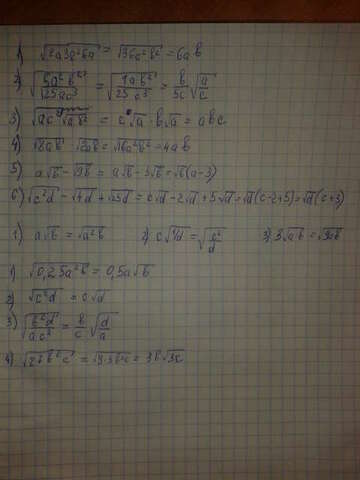 1) √12a3b²6a = √36a²b² = 6ab
2) √5a²b²/125ac³ = √1ab²/25c³ = b/5c √a/c
3) √ac² √ab² = c√a · b√a = abc
4) √8ab √2ab = √16a²b² = 4ab
5) a√b - √9b = a√b - 3√b = √b(a-3)
6) √c²d - √4d + √25d = c√d - 2√d + 5√d = √d(c-2+5) = √d(c+3)
1) a√b = √a²b 2) c√1/d = √c²/d 3) 3√ab = √9ab
1) √0,25a²b = 0,5a√b
2) √c²d = c√d
3) √b²d/ac² = b/c √d/a
4) √27b²c = √9·3b²c = 3b√3c